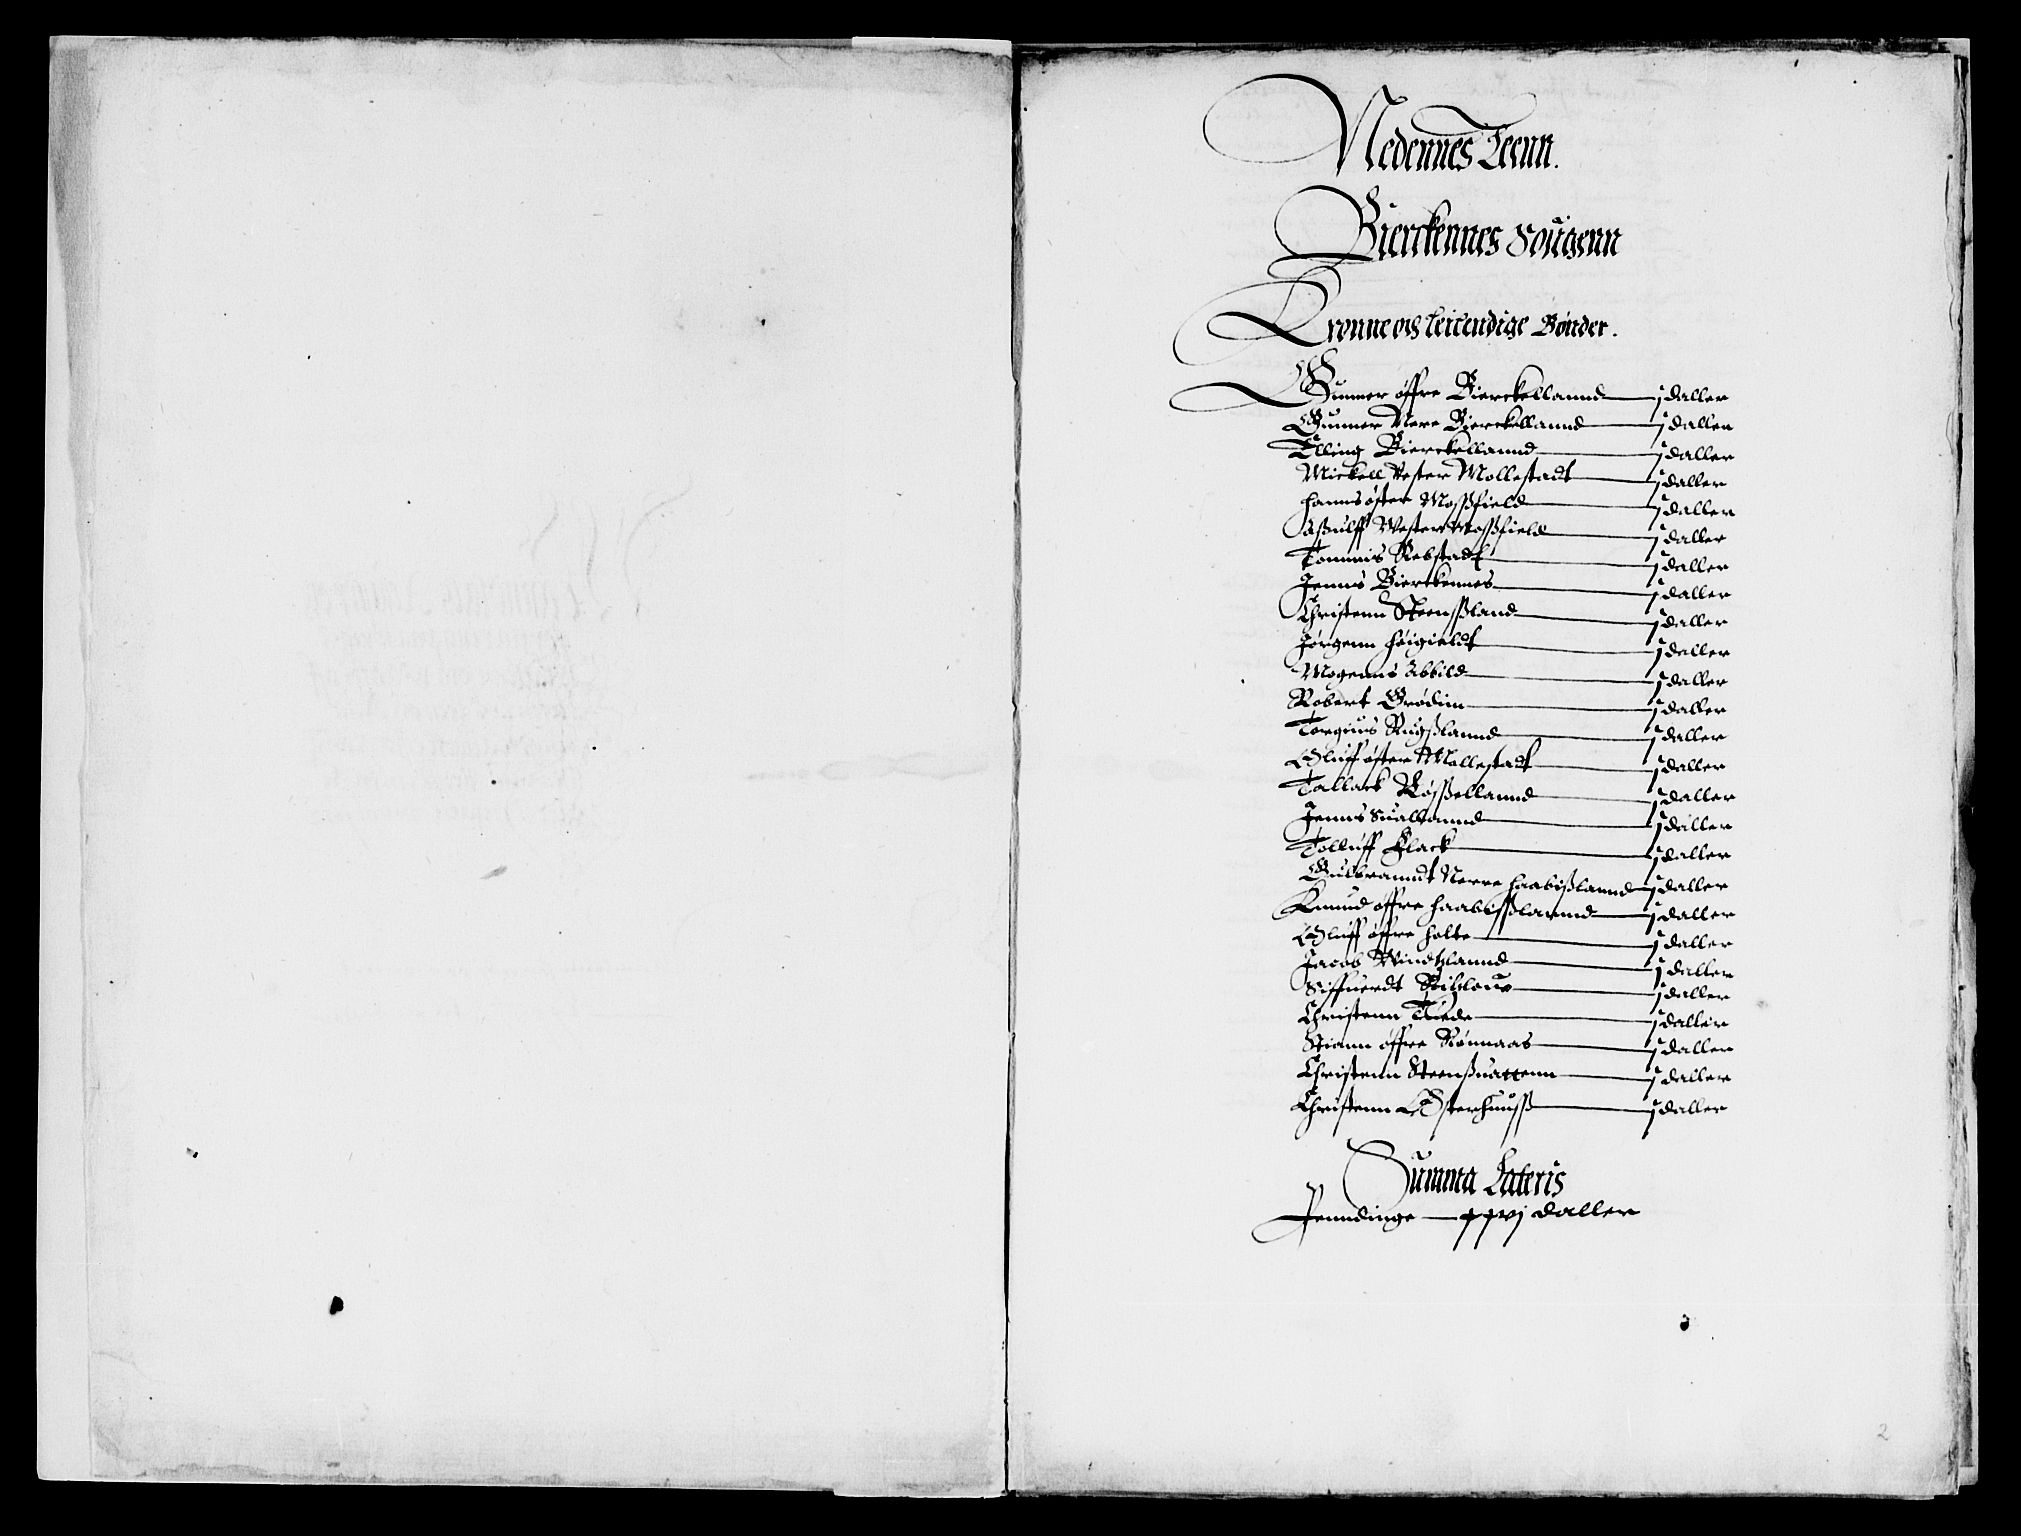 Nedennes Leenn.
Bierckennes Sougenn
Kronne och leilendige Bønder.
Gunner øffre Bierckellannd — j daller
Gunner Nere Bierckellannd — j daller
Elling Bierckellannd — j daller
Mickell Vester Mollestadt — j daller
Hanns øster Moßfield — j daller
Aßulff Wester Moßfield — j daller
Tommis Rebstadt — j daller
Jenns Bierckennes — j daller
Christenn Steensßland — j daller
Jørgenn Høigieldt — j daller
Mogenns Abbild — j daller
Robert Grødim — j daller
Torgius Rugßlannd — j daller
Oluff øster Mollestadt — j daller
Tallack Røßellannd — j daller
Jenns Sualannd — j daller
Tolluff Flack — j daller
Gulbranndt Nerre Haabißlannd — j daller
Knnud øffre Haabißlannd — j daller
Oluff øffre Holte — j daller
Jacob Windtzlannd — j daller
Siffuerdt — j daller
Christenn Tuede — j daller
Stiann øffre Rønnaas — j daller
Christenn Steenßuattenn — j daller
Christenn Østerhuuß — j daller
Summa Lateris
Penndinge — xxvj daller
2